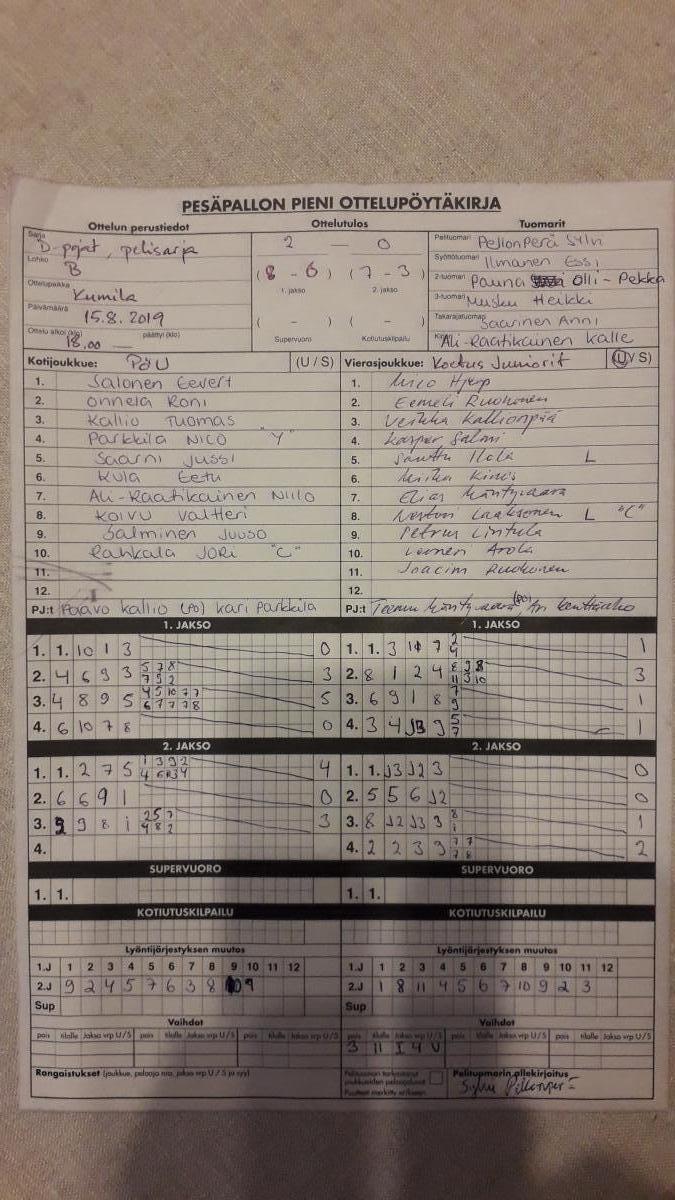 PESÄPALLON PIENI OTTELUPÖYTÄKIRJA
Ottelun perustiedot Ottelutulos Tuomarit
Sarja D-pojat, pelisarja
Lohko B
Ottelupaikka Kumila
Päivämäärä 15.8.2019
Ottelu alkoi (klo) 18.00 — päättyi (klo)
2 — 0
(8 - 6) (7 - 3)
1. jakso 2. jakso
( - ) ( - )
Supervuoro Kotiutuskilpailu
Pelituomari Pellonperä Sylvi
Syöttötuomari Ilmanen Essi
2-tuomari Pauna Olli-Pekka
3-tuomari Musku Heikki
Takarajatuomari Saarinen Anni
Ali-Raatikainen Kalle
Kotijoukkue: PöU (U / S)
1. Salonen Eevert
2. Onnela Roni
3. Kallio Tuomas
4. Parkkila Nico "Y"
5. Saarni Jussi
6. Kula Eetu
7. Ali-Raatikainen Niilo
8. Koivu Valtteri
9. Salminen Juuso
10. Rahkala Jori "C"
11.
12.
PJ:t Paavo Kallio (PO) Kari Parkkila
Vierasjoukkue: Koetus Juniorit (U / S)
1. Nico Hjerp
2. Eemeli Ruohonen
3. Veikka Kallionpää
4. Kasper Salmi
5. Santtu Ilola L
6. Miska
7. Elias Mäntyvaara
8. Laaksonen L "C"
9. Petrus Lintula
10. Arola
11. Joacim Ruohonen
12.
PJ:t Teemu Mäntyvaara (PO),
1. JAKSO
1. 1. 10 1 3 0
2. 4 6 9 3 5 7 8 7 9 2 3
3. 4 8 9 5 4 5 10 7 7 6 7 7 7 8 5
4. 6 10 7 8 0
2. JAKSO
1. 1. 2 7 5 4
2. 6 6 9 1 0
3. 9 9 8 1 2 5 7 4 8 2 3
4.
SUPERVUORO
1. 1.
KOTIUTUSKILPAILU
1. JAKSO
1. 1. 3 7 2 4 1
2. 8 1 2 4 3
3. 6 9 1 8 7 9 1
4. 3 4 J3 9 5 7 1
2. JAKSO
1. 1. J3 J2 3 0
2. 5 5 6 J2 0
3. 8 J2 J3 3 8 1 1
4. 2 2 3 9 7 7 7 8 2
SUPERVUORO
1. 1.
KOTIUTUSKILPAILU
Lyöntijärjestyksen muutos
1.J 1 2 3 4 5 6 7 8 9 10 11 12
2.J 9 2 4 5 7 6 3 8 10 9
Sup
Lyöntijärjestyksen muutos
1.J 1 2 3 4 5 6 7 8 9 10 11 12
2.J 1 8 11 4 5 6 7 10 9 2 3
Sup
Vaihdot
pois tilalle Jakso vrp U / S pois tilalle Jakso vrp U / S pois tilalle Jakso vrp U / S
Vaihdot
pois tilalle Jakso vrp U / S pois tilalle Jakso vrp U / S pois tilalle Jakso vrp U / S
3 11 I 4 U
Rangaistukset (joukkue, pelaaja nro, jakso vrp U / S ja syy)
Pelituomari tarkastanut joukkueiden pelaajaluvat
Puutteet merkitty erikseen
Pelituomarin allekirjoitus
Sylvi Pellonperä